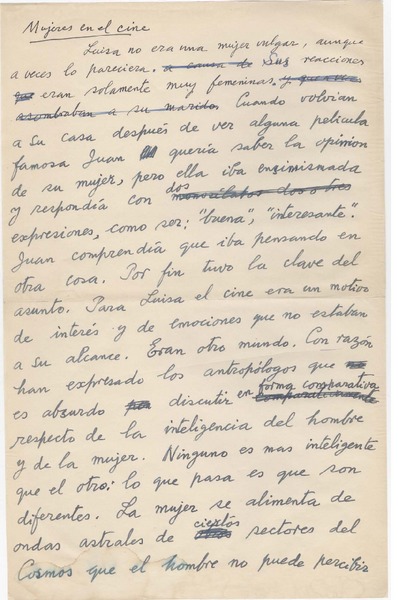 Mujeres en el cine
Luisa no era una mujer vulgar, aunque
a veces lo pareciera. a causa de Sus reacciones
que eran solamente muy femeninas. y que a veces
asombraban a su marido. Cuando volvían
a su casa después de ver alguna película
famosa Juan quería saber la opinión
de su mujer, pero ella iba ensimismada
y respondía con dos monosílabos dos o tres
expresiones, como ser: "buena", "interesante".
Juan comprendía que iba pensando en
otra cosa. Por fin tuvo la clave del
asunto. Para Luisa el cine era un motivo
de interés y de emociones que no estaban
a su alcance. Eran otro mundo. Con razón
han expresado los antropólogos que no
es absurdo discutir en forma comparativa comparativamente
respecto de la inteligencia del hombre
y de la mujer. Ninguno es mas inteligente
que el otro: lo que pasa es que son
diferentes. La mujer se alimenta de
ondas astrales de ciertos otros sectores del
Cosmos que el hombre no puede percibir